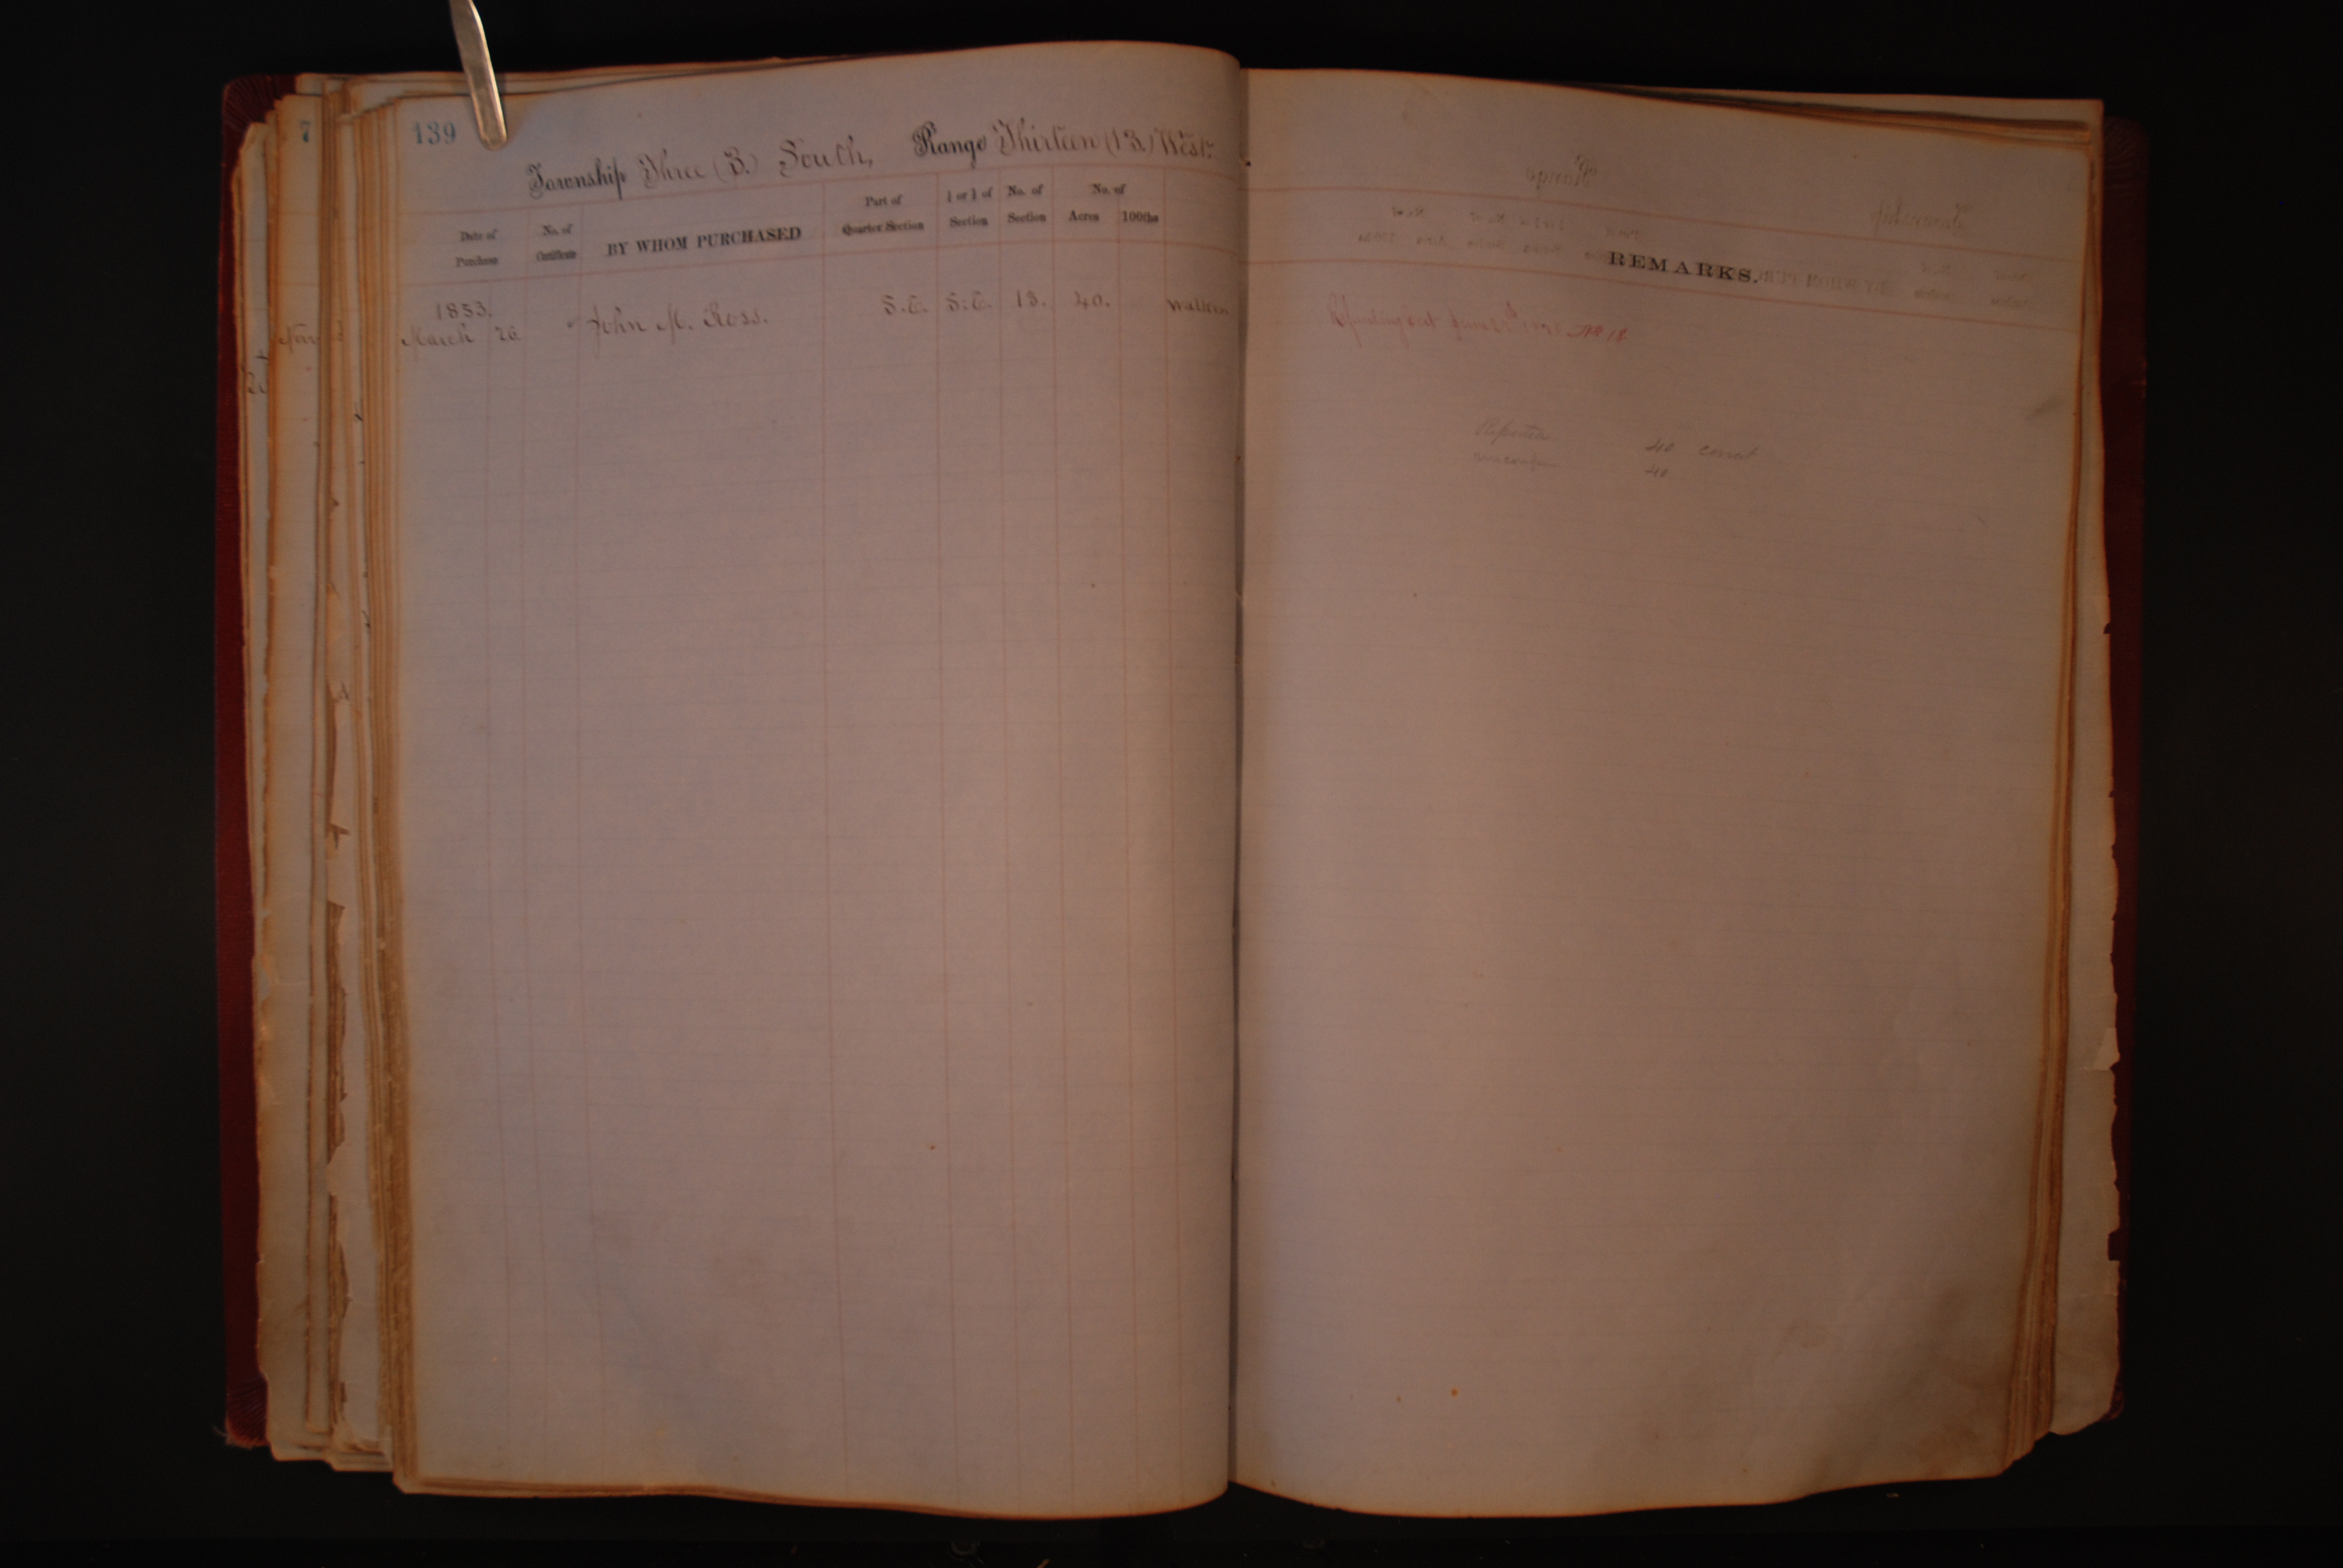 139
7
Township Three (3.) South, Range Thirteen (13.) West.
Date of Purchase
No. of Certificate
BY WHOM PURCHASED
Part of Quarter Section
½ or ¼ of Section
No. of Section
No. of
Acres 100ths
1853.
March 26 John M. Ross. S.E. S.E. 13. 40. Walton
REMARKS.
June No 18
40 correct
40